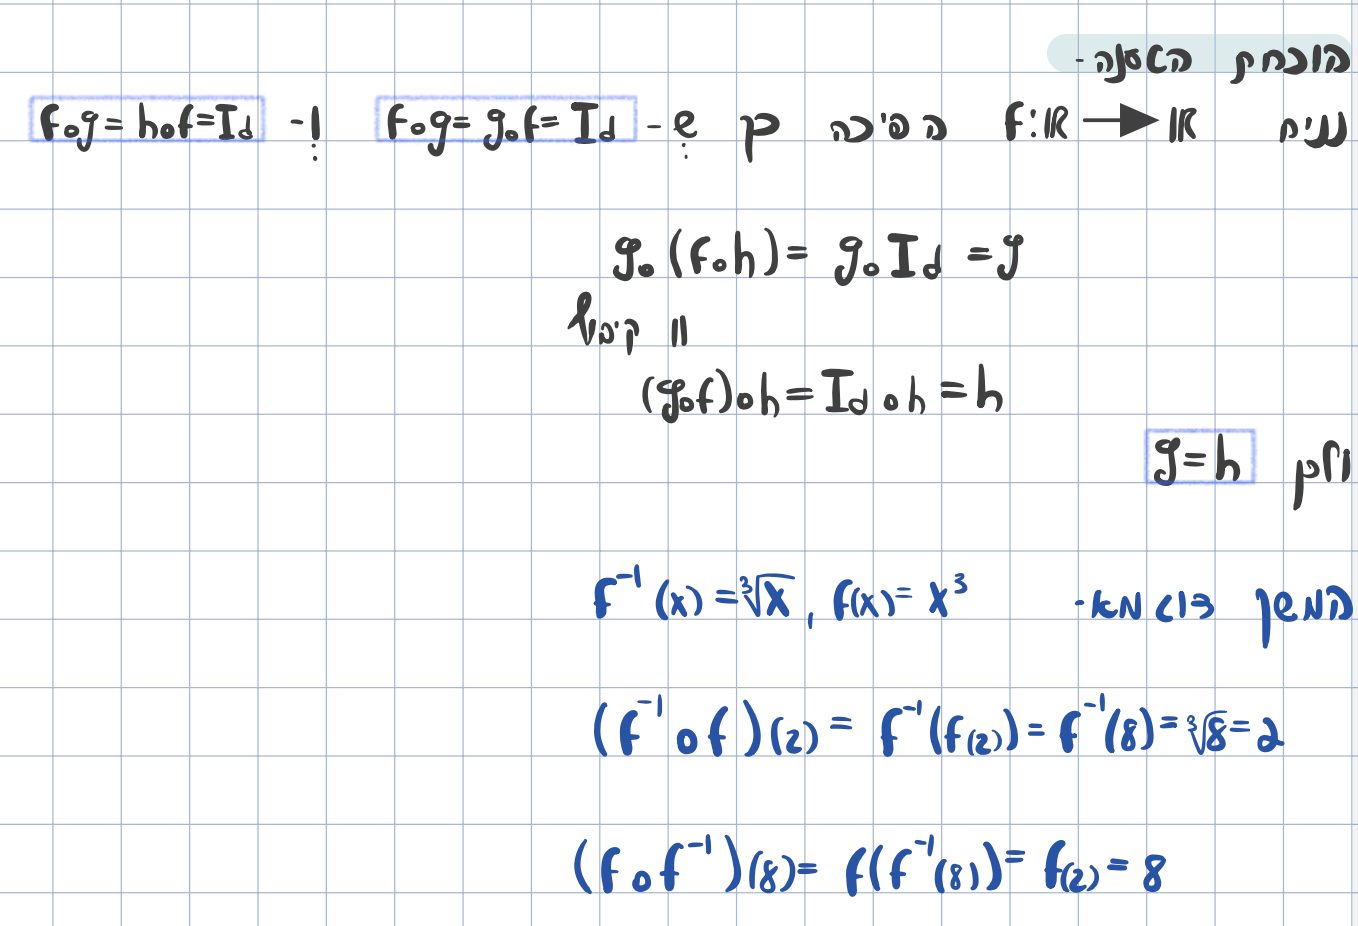 הוכחת הטענה-
נניח f:ℝ → ℝ הפיכה כך ש- f∘g = g∘f = Id ו- f∘g = h∘f = Id
g∘(f∘h) = g∘Id = g
|| קיבוץ
(g∘f)∘h = Id∘h = h
ולכן g=h
המשך דוגמא- f(x) = x³ , f⁻¹(x) = ∛x
(f⁻¹∘f)(2) = f⁻¹(f(2)) = f⁻¹(8) = ∛8 = 2
(f∘f⁻¹)(8) = f(f⁻¹(8)) = f(2) = 8